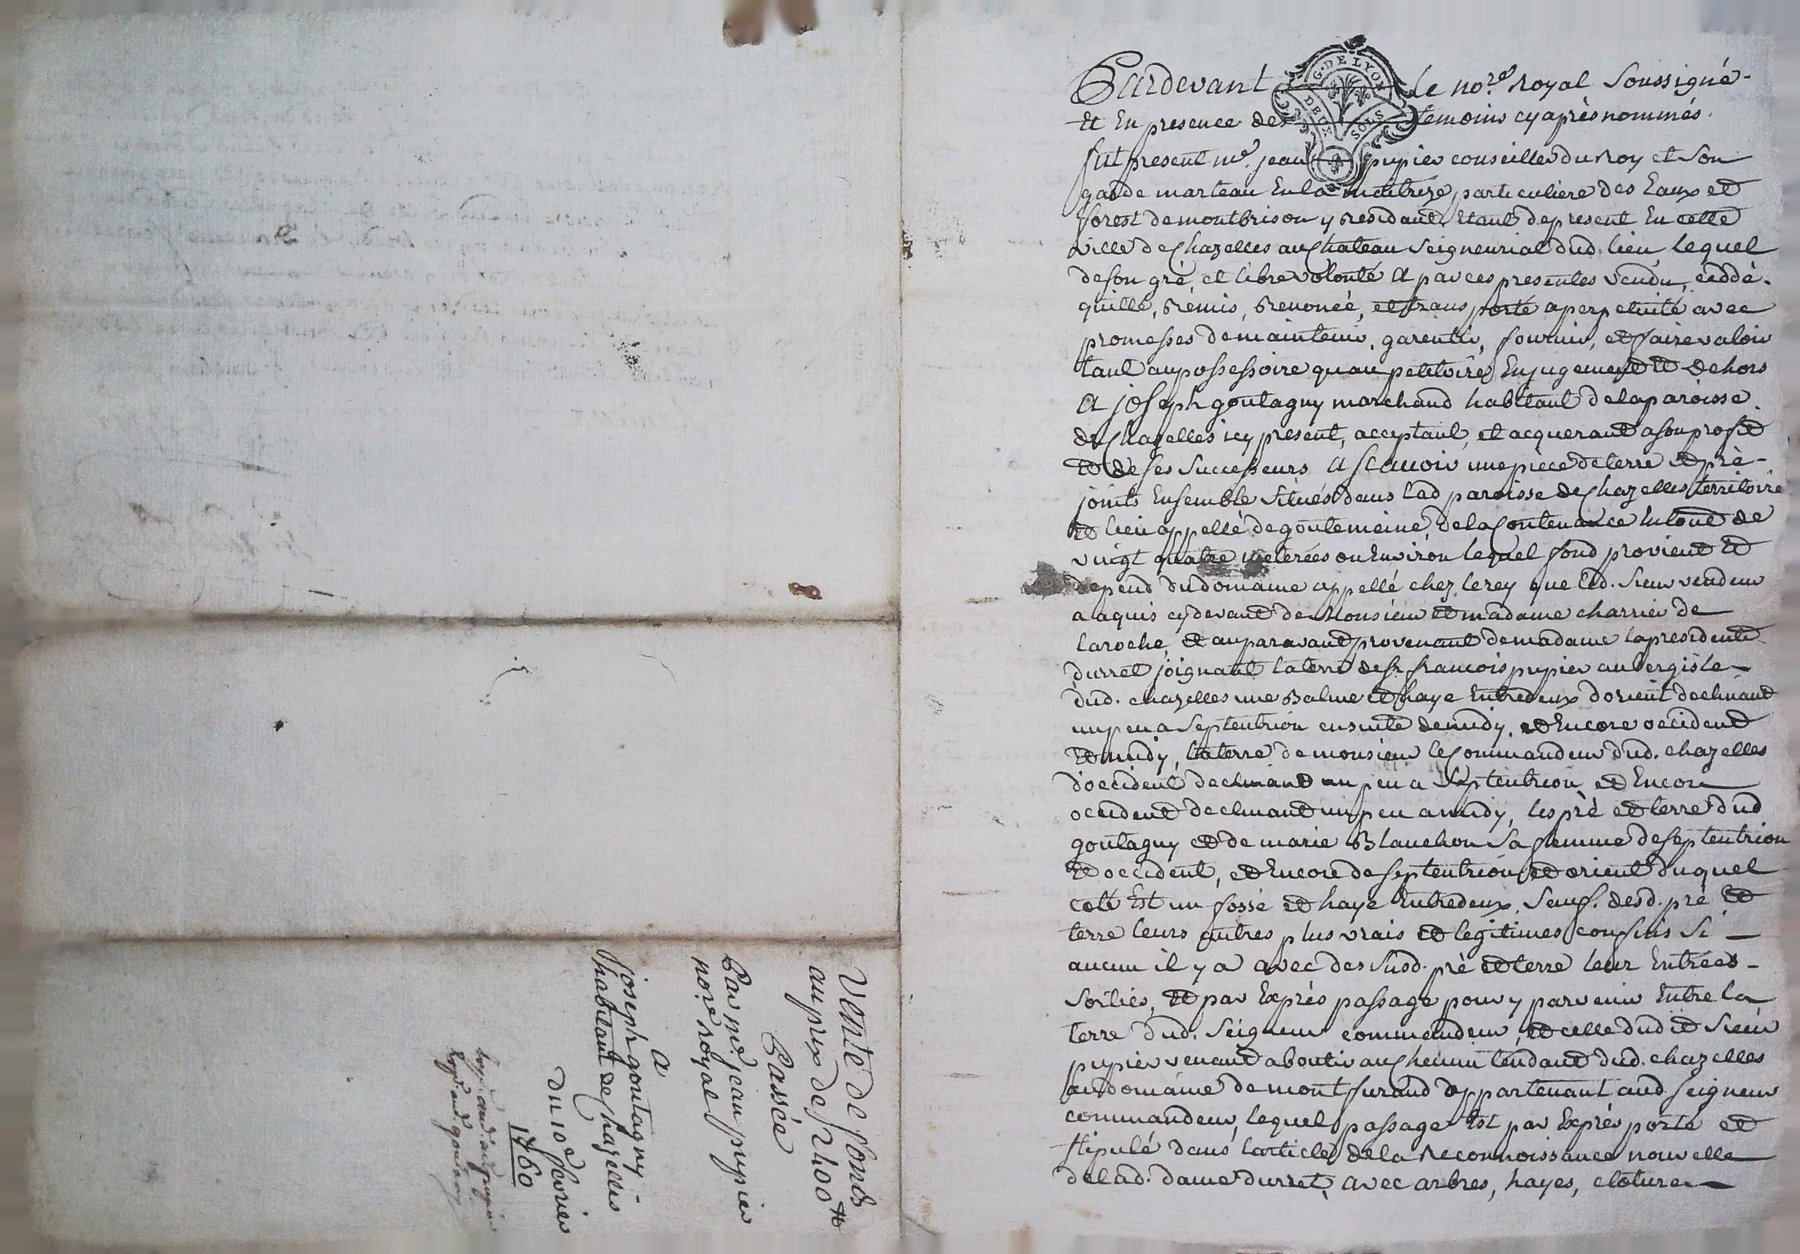 Pardevant le no.re Royal Soussigné
G. DE LYON
DEUX SOLS
Et En presence des temoins cy après nommés.
fut present me. jean pupier conseiller du Roy et Son
garde marteau En la maitrize particuliere des Eaux et
forest de montbrison y residant Etant de present En cette
ville de Chazelles au Chateau Seigneurial dud. lieu, lequel
de son gré, et libre volonté A par ces presentes vendu, ceddé
quitté, remis, Renoncé, et transporté a perpetuité avec
promesses de maintenir, garentir, fournir, et faire valoir
tant au possessoire qu'au petitoire En jugement Et dehors
A joseph goutagny marchand habitant de la paroisse
de Chazelles icy present, acceptant, et acquerant a son profit
Et de ses Successeurs A scavoir une pièce de terre Et prè
joints Ensemble Situés dans lad paroisse de Chazelles territoire
Et lieu appellé de goutemeine de la Contenance En tout de
vingt quatre meterées ou Environ lequel fond provient Et
depend du domaine appellé chez lerey que led. Sieur vendeur
a aquis cy devant de Monsieur Et madame charrier de
laroche, Et auparavant provenant de madame la presidente
durret joignant la terre de sr. francois pupier aubergiste
dud. chazelles une Balme Et haye Entredeux d'orient declinant
un peu a Septentrion ensuite de midy, et Encore occident
Et midy, la terre de monsieur le Commandeur dud. chazelles
d'occident declinant un peu a Septentrion, et Encore
occident declinant un peu a midy, les pré et terre dud
goutagny et de marie Blanchon Sa femme de septentrion
Et occident, et Encore de septentrion Et orient duquel
coté Est un fossé Et haye Entredeux, Sauf. desd. pré Et
terre leurs autres plus vrais Et legitimes confins Si
aucun il y a avec des Susd. pré et terre leur Entrées
Sorties, Et par Exprés passage pour y parvenir Entre la
terre dud. Seigneur commandeur, et celle dudit Sieur
pupier venant aboutir au Chemin tendant dud. chazelles
au domaine de montfurand appartenant aud Seigneur
commandeur, lequel passage Est par Exprès porté et
stipulé dans l'article de la Reconnoissance nouvelle
de lad. dame durret, avec arbres, hayes, cloture
Vente de fonds
au prix de 2400 ₶
Passée
Par me. jean pupier
nore. Royal
A
joseph goutagny
habitant de Chazelles
du 10e fevrier
1760